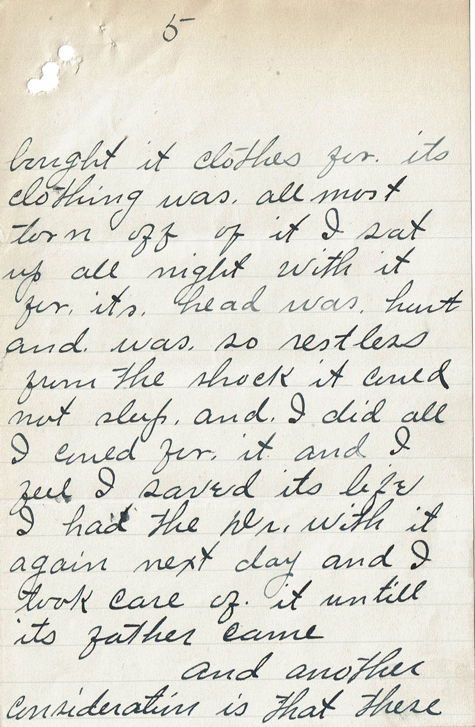 5
bought it clothes for. its
clothing was. all most
torn off of it I sat
up all night with it
for. its. head was. hurt
and. was. so restless
from the shock it could
not sleep. and. I did all
I could for. it and I
feel I saved its life
I had the Dr. with it
again next day and I
took care of. it untill
its father came
and another
consideration is that these